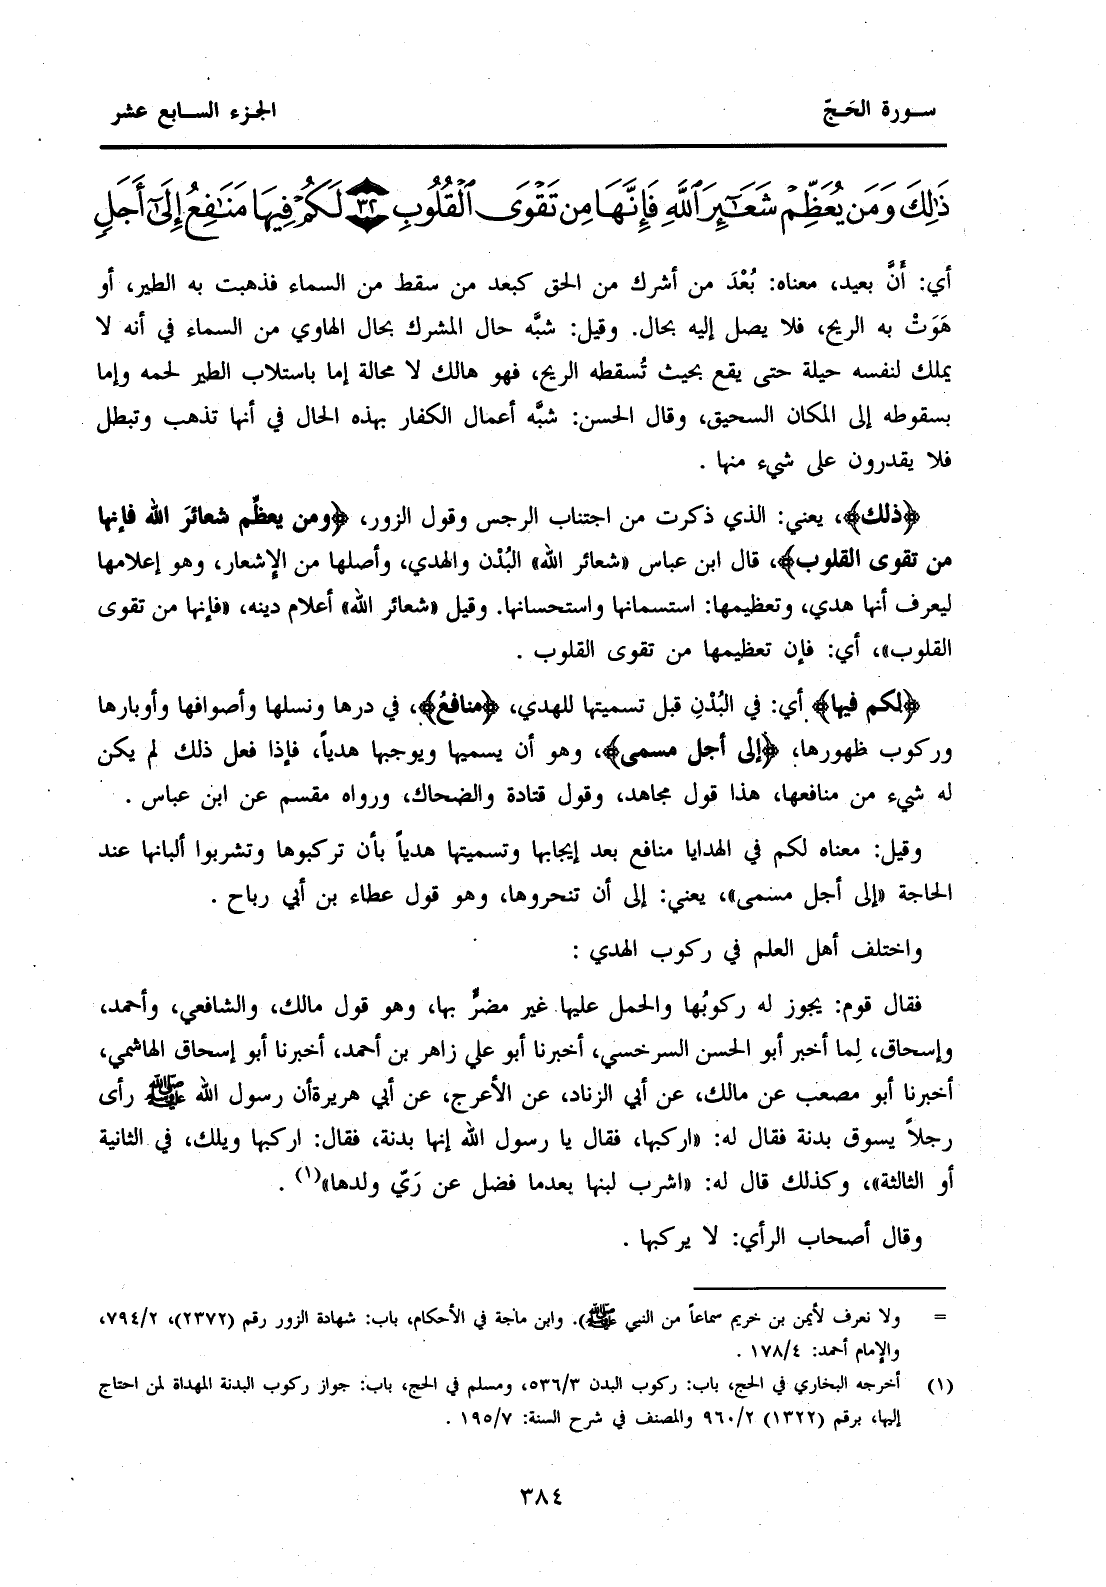 سـورة الحَـجّ
الجـزء السـابع عشر
ذَٰلِكَ وَمَن يُعَظِّمْ شَعَـٰٓئِرَ ٱللَّهِ فَإِنَّهَا مِن تَقْوَى ٱلْقُلُوبِ ٣٢ لَكُمْ فِيهَا مَنَـٰفِعُ إِلَىٰٓ أَجَلٍ
أي: أَنَّ بعيد، معناه: بُعْدَ من أشرك من الحق كبعد من سقط من السماء فذهبت به الطير، أو
هَوَتْ به الريح، فلا يصل إليه بحال. وقيل: شبَّه حال المشرك بحال الهاوي من السماء في أنه لا
يملك لنفسه حيلة حتى يقع بحيث تُسقطه الريح، فهو هالك لا محالة إما باستلاب الطير لحمه وإما
بسقوطه إلى المكان السحيق، وقال الحسن: شبَّه أعمال الكفار بهذه الحال في أنها تذهب وتبطل
فلا يقدرون على شيء منها .
﴿ذلك﴾، يعني: الذي ذكرت من اجتناب الرجس وقول الزور، ﴿ومن يعظِّم شعائرَ الله فإنها
من تقوى القلوب﴾، قال ابن عباس «شعائر الله» البُدْن والهدي، وأصلها من الإشعار، وهو إعلامها
ليعرف أنها هدي، وتعظيمها: استسمانها واستحسانها. وقيل «شعائر الله» أعلام دينه، «فإنها من تقوى
القلوب»، أي: فإن تعظيمها من تقوى القلوب .
﴿لكم فيها﴾ أي: في البُدْنِ قبل تسميتها للهدي، ﴿منافعُ﴾، في درها ونسلها وأصوافها وأوبارها
وركوب ظهورها، ﴿إلى أجل مسمى﴾، وهو أن يسميها ويوجبها هدياً، فإذا فعل ذلك لم يكن
له شيء من منافعها، هذا قول مجاهد، وقول قتادة والضحاك، ورواه مقسم عن ابن عباس .
وقيل: معناه لكم في الهدايا منافع بعد إيجابها وتسميتها هدياً بأن تركبوها وتشربوا ألبانها عند
الحاجة «إلى أجل مسمى»، يعني: إلى أن تنحروها، وهو قول عطاء بن أبي رباح .
واختلف أهل العلم في ركوب الهدي :
فقال قوم: يجوز له ركوبُها والحمل عليها غير مضرٍّ بها، وهو قول مالك، والشافعي، وأحمد،
وإسحاق، لِما أخبر أبو الحسن السرخسي، أخبرنا أبو علي زاهر بن أحمد، أخبرنا أبو إسحاق الهاشمي،
أخبرنا أبو مصعب عن مالك، عن أبي الزناد، عن الأعرج، عن أبي هريرةأن رسول الله ﷺ رأى
رجلاً يسوق بدنة فقال له: «اركبها، فقال يا رسول الله إنها بدنة، فقال: اركبها ويلك، في الثانية
أو الثالثة»، وكذلك قال له: «اشرب لبنها بعدما فضل عن رَيّ ولدها»(١) .
وقال أصحاب الرأي: لا يركبها .
= ولا نعرف لأيمن بن خريم سماعاً من النبي ﷺ). وابن ماجة في الأحكام، باب: شهادة الزور رقم (٢٣٧٢)، ٧٩٤/٢،
والإمام أحمد: ١٧٨/٤ .
(١) أخرجه البخاري في الحج، باب: ركوب البدن ٥٣٦/٣، ومسلم في الحج، باب: جواز ركوب البدنة المهداة لمن احتاج
إليها، برقم (١٣٢٢) ٩٦٠/٢ والمصنف في شرح السنة: ١٩٥/٧ .
٣٨٤